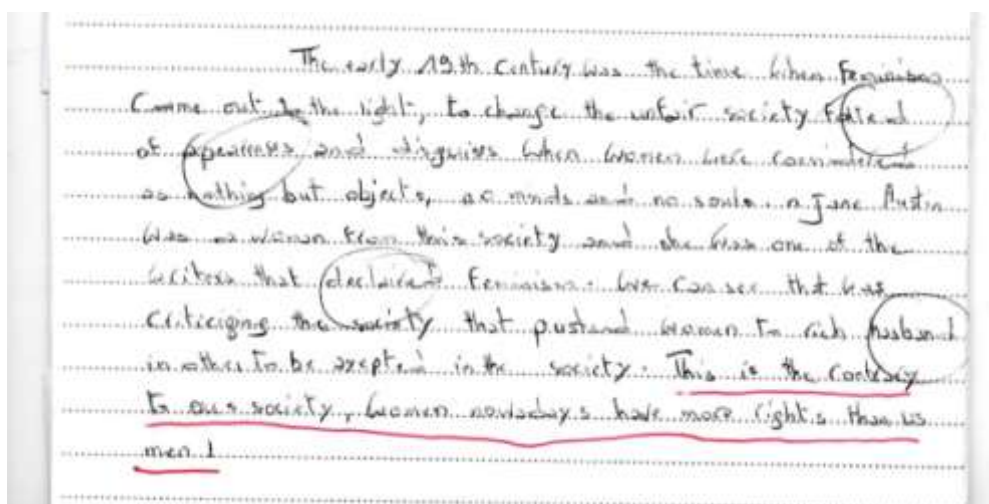 The early 19th Century was the time when Feminism
Comme out to the light, to change the unfair society
of apearenses and disguises when women were considered
as nothing but objects, no minds and no souls. Jane Austin
was a woman from this society and she was one of the
writers that declaired Feminism. we can see that was
Criticiging the society that pushed women to rich husband
in other to be axepted in the society. This is the contrary
to our society, women nowadays have more rights than us
men !